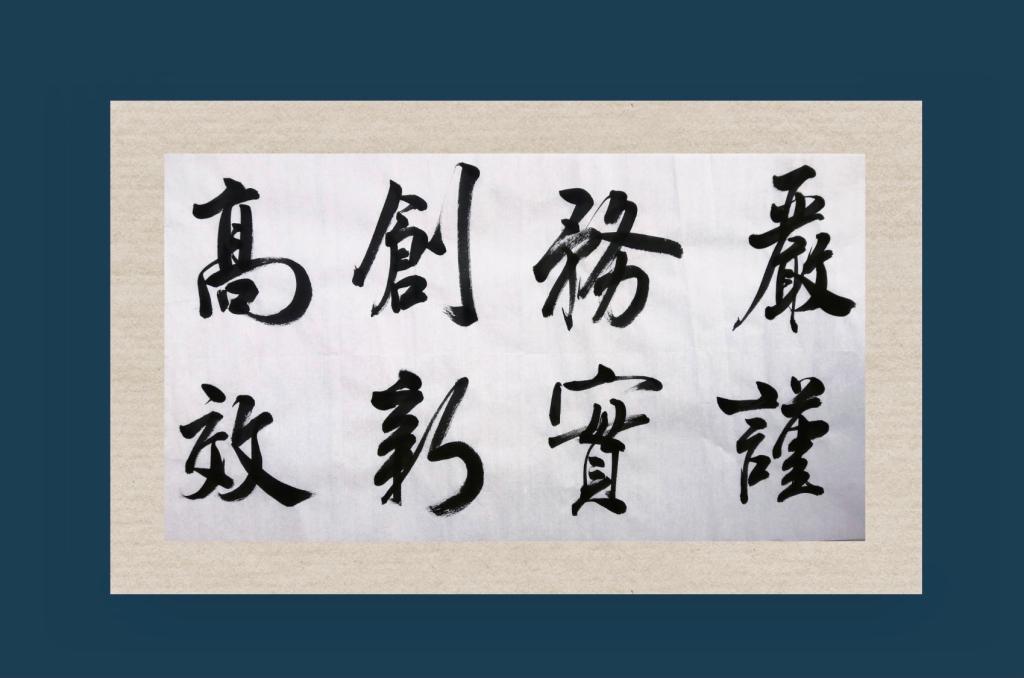 嚴謹
務實
創新
高效